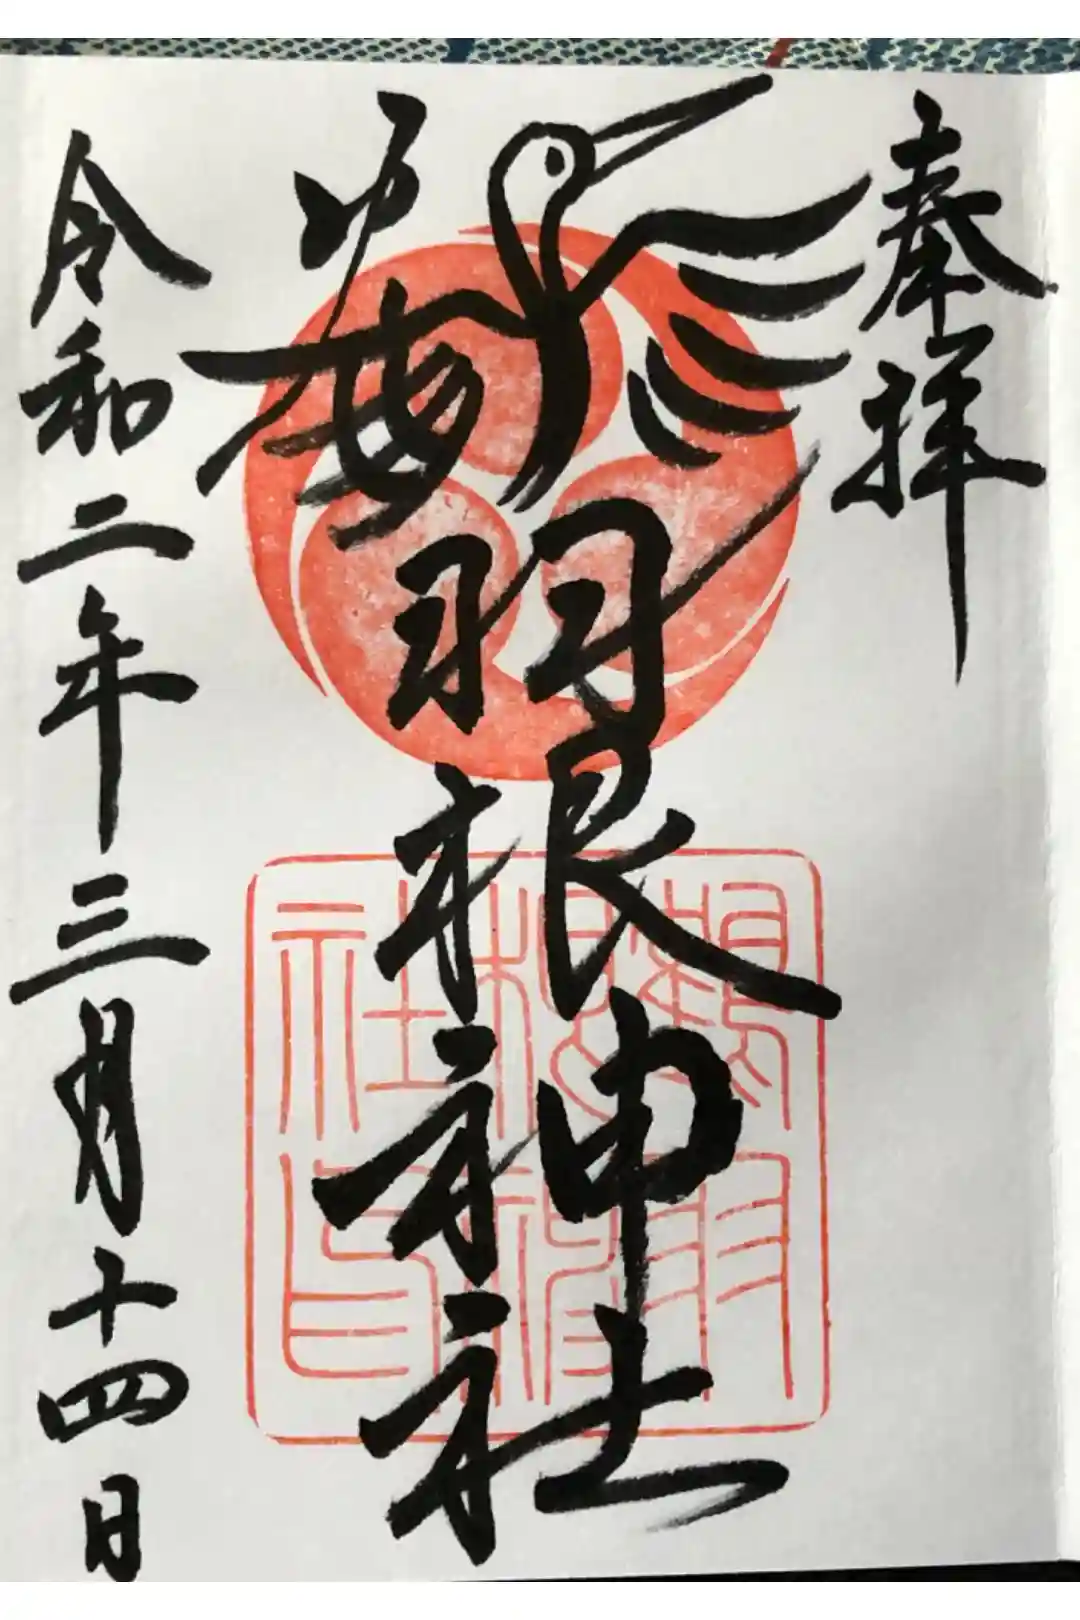 奉拝
鶴羽根神社
令和二年三月十四日
鶴羽
根神
社印